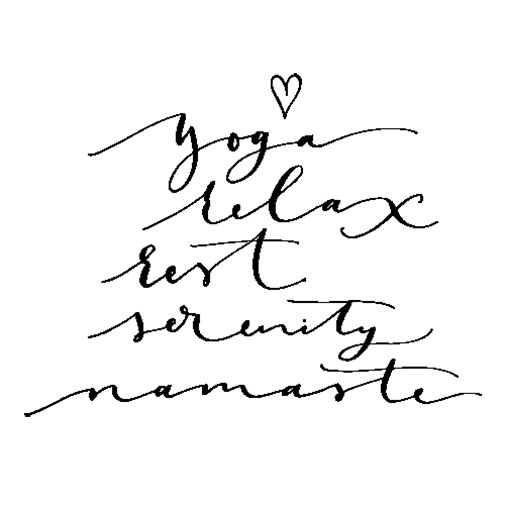 yoga
relax
rest
serenity
namaste